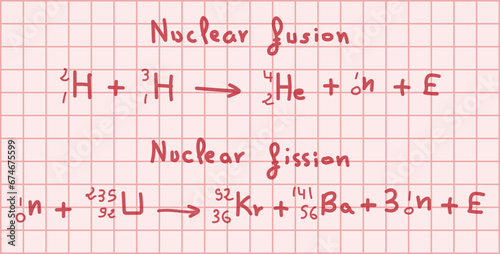 Nuclear fusion
²₁H + ³₁H → ⁴₂He + ¹₀n + E
Nuclear fission
¹₀n + ²³⁵₉₂U → ⁹²₃₆Kr + ¹⁴¹₅₆Ba + 3¹₀n + E
Adobe Stock | #674675599